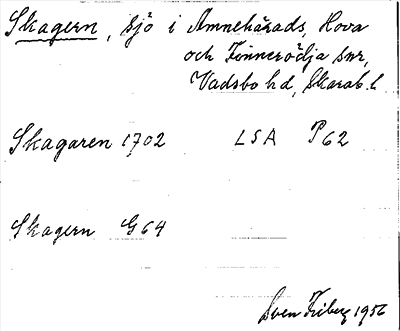 Skagern, sjö i Amnehärads, Hova
och Finnerödja snr,
Vadsbo hd, Skarab. l.
Skagaren 1702 LSA P62
Skagern G64
Sven Friberg 1956